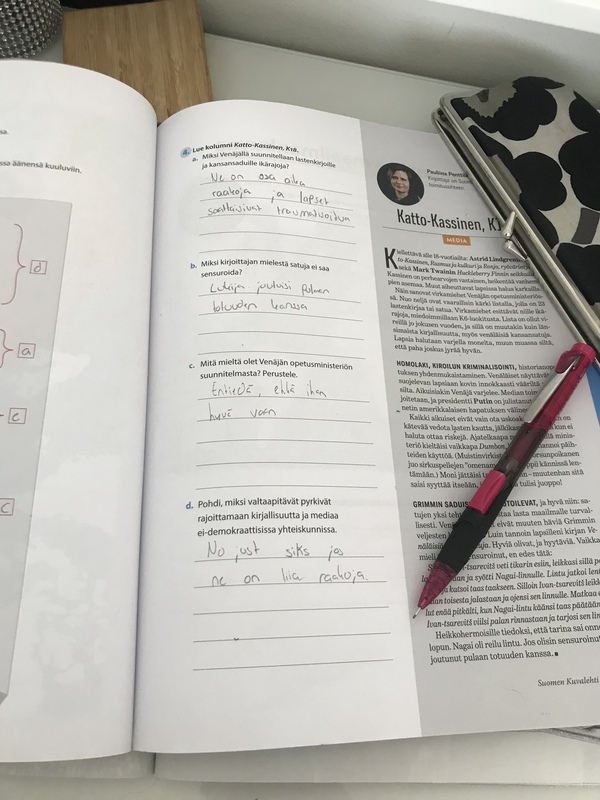 sa.
ssa äänensä kuuluviin.
d
a
e
c
4. Lue kolumni Katto-Kassinen, K18.
a. Miksi Venäjällä suunnitellaan lastenkirjoille
ja kansansaduille ikärajoja?
Ne on osa aika
raakoja ja lapset
saattaisivat traumatisoitua
b. Miksi kirjoittajan mielestä satuja ei saa
sensuroida?
Lukija joutuisi pulaan
totuuden kanssa
c. Mitä mieltä olet Venäjän opetusministeriön
suunnitelmasta? Perustele.
Entiedä, ehkä ihan
hyvä vaan
d. Pohdi, miksi valtaapitävät pyrkivät
rajoittamaan kirjallisuutta ja mediaa
ei-demokraattisissa yhteiskunnissa.
No just siks jos
ne on liia raakoja.
Pauliina Penttilä
Kirjoittaja on Suomen
toimitussihteeri.
Katto-Kassinen, K1
MEDIA
Kiellettävä alle 18-vuotiailta: Astrid Lindgrenin
sekä Mark Twainin Huckleberry Finnin seikkailu
Kassinen on perhearvojen vastainen, heikentää vanhem
pien asemaa. Muut aiheuttavat lapsissa halua karkailla.
Näin sanovat virkamiehet Venäjän opetusministeriös-
sä. Nuo neljä ovat vaarallisin kärki listalla, jolla on 23
lastenkirjaa tai satua. Virkamiehet esittävät niille ikä-
rajoja, miedoimmillaan K6-lookitusta. Lista on ollut vi-
reillä jo vuoden, ja sillä on muutakin kuin län-
simaista kirjallisuutta, myös venäläisiä kansansatuja.
Lapsia halutaan varjella moneilta, muun muassa siltä,
että paha joskus jyrää hyvän.
HOMOLAKI, KIROILUN KRIMINALISOINTI, historiano
tuksen yhdenmukaistaminen. Venäläiset näyttävät
suojelevan lapsiaan kovin innokkaasti vääriltä
silta. Aikuisiakin Venäjä varjelee. Median toim
joitetaan, ja presidentti Putin on julistanut
netin amerikkalaisen hapatuksen välinee
Kaikki aikuiset eivät vain ota uskoak
kätevää vedota lasten kautta, jälkika
haluta ottaa riskejä. Ajatelkaapa
teriö kieltäisi vaikkapa Dumbon
teiden käyttöä. (Muistinvirkist
juo sirkuspellejen "omenam
tämään.) Moni jättäisi ta
saisi syyttää itseään, tulisi juoppo!
GRIMMIN SADUIS OTOILEVAT, ja hyvä niin: sa-
tujen yksi teh tata maailmalle turval-
lisesti. Venä eivät muuten häviä Grimmin
veljesten Luin tannoin lapsilleni kirjan Ve-
näläisiä Hyviä olivat, ja hyytäviä. Vaikka
mieli sensuroinut, en edes tätä:
Ivan-tsarevitš veti tikarin esiin, leikkasi sillä p
ja syötti Nagai-linnulle. Lintu jatkoi lent
ja katsoi taas taakseen. Silloin Ivan-tsarevitš leikk
toisesta jalastaan ja ojensi sen linnulle. Matkaa e
lut enää pitkälti, kun Nagai-lintu käänsi taas päätään
Ivan-tsarevitš viilsi palan rinnastaan ja tarjosi sen lin
Heikkohermoisille tiedoksi, että tarina sai onne
lopun. Nagai oli reilu lintu. Jos olisin sensuroinut
joutunut pulaan totuuden kanssa.
Suomen Kuvalehti